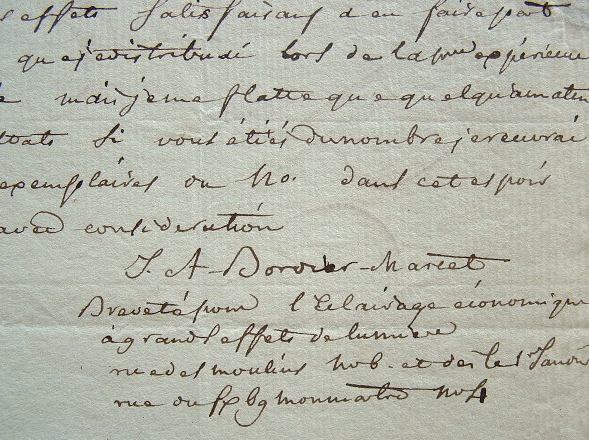 effets satisfaisans d'en faire part
que je distribuai lors de la pre expérience
mais je me flatte que quelqu'amateur
Si vous étiés du nombre je recevrai
exemplaires ou No. dans cet espoir
avec considération
J. A. Bordier-Marcet
Breveté pour l'Eclairage économique
à grands effets de lumière
rue des moulins No 6. et dès le 1er Janvier
rue du fxbg montmartre No 4